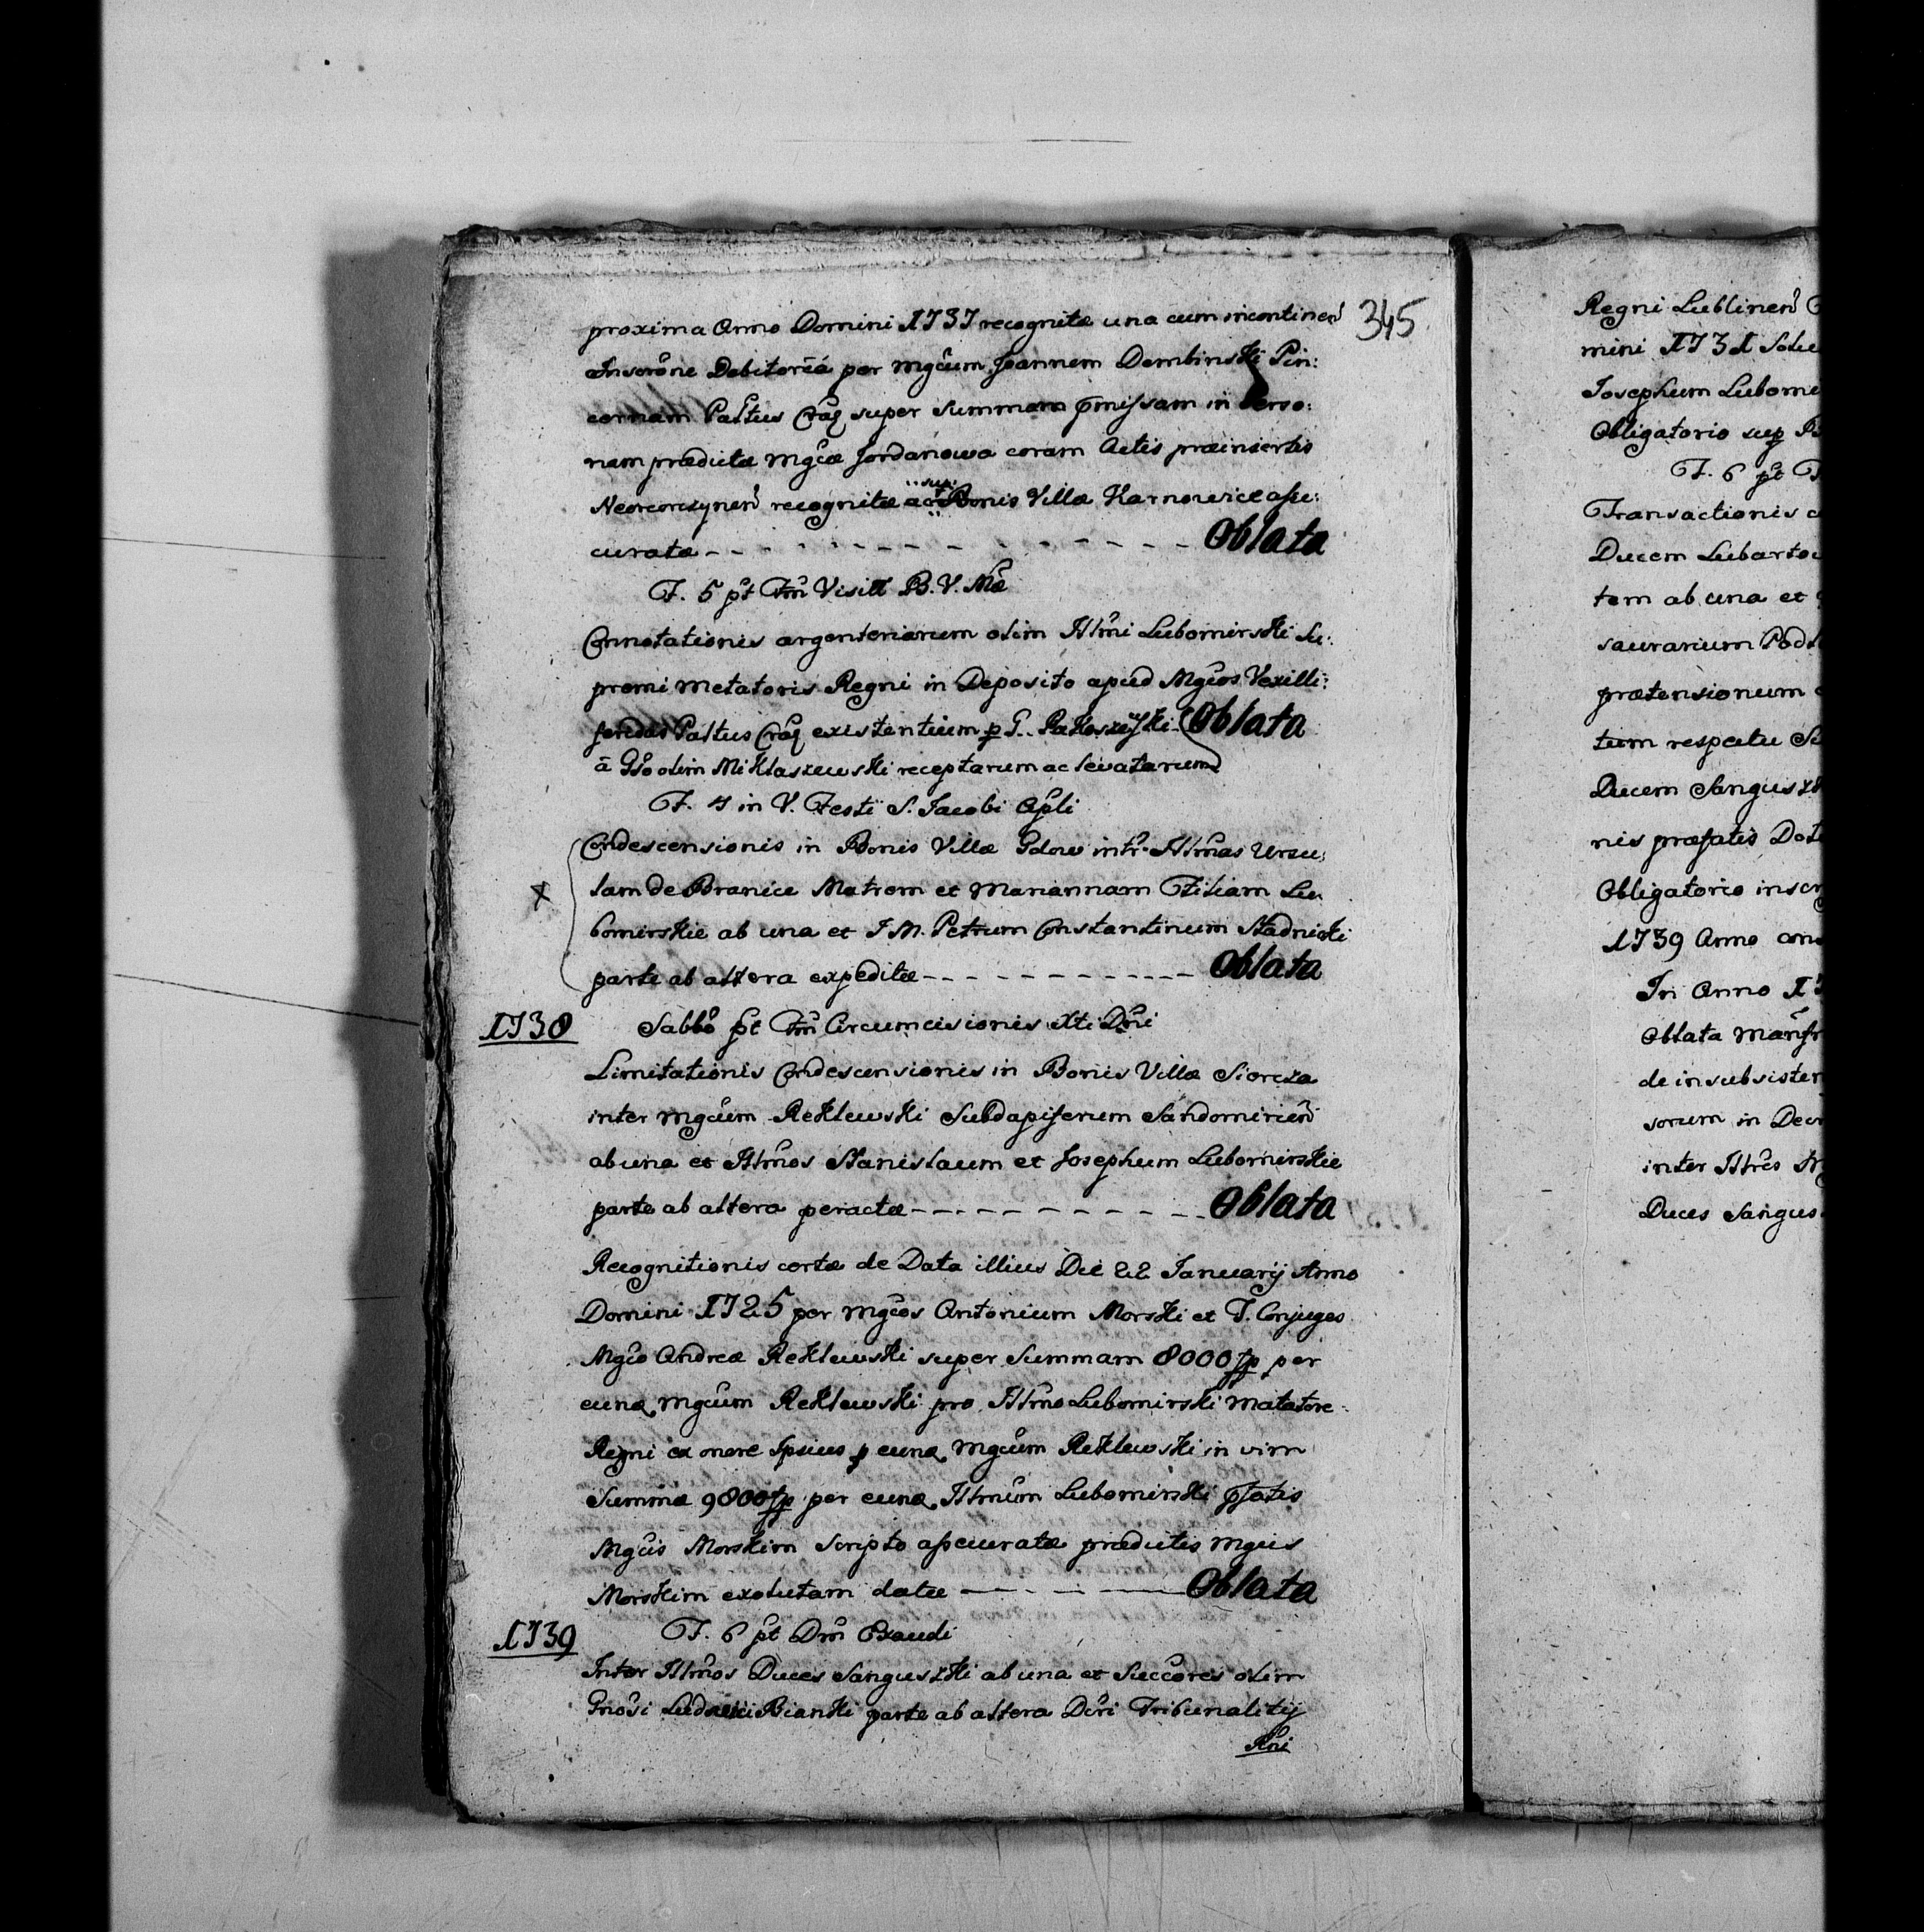 345
proxima Anno Domini 1737 recognitæ una cum incontinen̄
Inscr̄one Debitoria per Mgcum Joannem Dembinski Pin:
cernam Pal̄tus Crac̄ super Summam p̄missam in Perso:
nam prædictæ Mgcæ Jordanowa coram Actis præinsertis
Neocorczynen̄ recognitæ ac sup: Bonis Villæ Karnowice asse:
curatæ - - - - - - - - - - Oblata
F. 5 pt Fm̄ Visitt B. V. Mæ
Connotationis argenteriarum olim Illmi Lubomirski Su:
premi Metatoris Regni in Deposito apud Mgcos Vexilli:
feridas Pal̄tus Crac̄ existentium p G. Oblata
à Gso olim Miklaszewski receptarum ac levatarum
F. 4 in V. Festi S. Jacobi Apli
Condescensionis in Bonis Villæ Gdow intr̄ Illmas Ursu:
X lam de Branice Matrem et Mariannam Filiam Lu
bomirskie ab una et J. M. Petrum Constantinum Stadnicki
parte ab altera expeditæ - - - - - - - - - - Oblata
1738 Sabbo pt Fm̄ Circumcisionis Xti Dn̄i
Limitationis Condescensionis in Bonis Villæ Siercza
inter Mgcum Reklewski Subdapiferum Sandomirien̄
ab una et Illmos Stanislaum et Josephum Lubomirskie
parte ab altera peractæ - - - - - - - - - - Oblata
Recognitionis certæ de Data illius Die 22 Januarij Anno
Domini 1725 per Mgcos Antonium Morski et T. Conjuges
Mgco Andreæ Reklewski super Summam 8000 fp per
eunq Mgcum Reklewski pro Illmo Lubomirski Metatore
Regni ex onere Ipsius p eunq Mgcum Reklewski in vim
Summæ 9800 fp per eunq Illmum Lubomirski p̄fatis
Mgcis Morskim Scripto assecuratæ prædictis Mgcis
Morskim exolutam datæ - - - Oblata
1739 F. 6 pt Dm̄ Exaudi
Inter Illmos Duces Sanguszki ab una et Succores olim
Gnosi Ludovici Bianki parte ab altera Dcri Tribunalitij
Rni
Regni Lublinen̄
mini 1731
Josephum Lubome
Obligatorio sup
F. 6 pt
Transactionis
Ducem Lubarto
tem ab una et
saurarium Pod
prætensionum
tum respectu
Ducem Sangusz
nis præfatis
Obligatorio inscr
1739 Anno con
In Anno
Oblata Manifr
de insubsisten
sorum in Decr
inter Illres
Duces Sangus